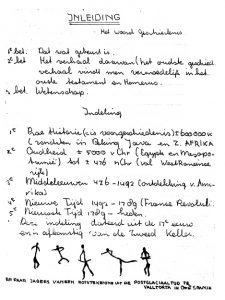 INLEIDING
Het woord Geschiedenis
1e bet. Dat wat gebeurt is.
2e bet. Het verhaal daarvan (het oudste geschied
verhaal vindt men vermoedelijk in het
oude testament en Homerus.
3 bet. Wetenschap.
Indeling
1e Prae Historie (is voorgeschiedenis) ± 600000 v
(vondsten in Peking Java en Z. AFRIKA
2e Oudheid ± 5000 v Chr (Egypte en Mesopo-
tamië) tot ± 476 n Chr (val West Romeinse
rijk)
3e Middeleeuwen 476 - 1492 (ontdekking v. Ame-
rika)
4e Nieuwe Tijd 1492 - 1789 (Franse Revoluti
5e Nieuwste Tijd 1789 - heden.
Deze indeling dateert uit de 17e eeuw
en is afkomstig van de Zweed Keller.
EEN PAAR JAGERS VAN EEN ROTSTEKENING UIT DE POSTGLACIALE TIJD TE
VALLTORTA IN OOST SPANJE